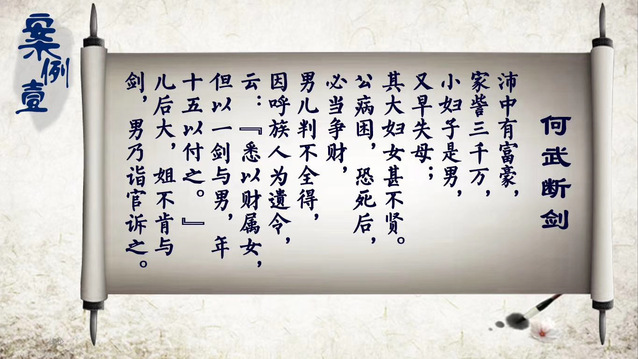 案例壹
何武断剑
沛中有富豪，
家訾三千万，
小妇子是男，
又早失母；
其大妇女甚不贤。
公病困，恐死后，
必当争财，
男儿判不全得，
因呼族人为遗令，
云：『悉以财属女，
但以一剑与男，年
十五以付之。』
儿后大，姐不肯与
剑，男乃诣官诉之。